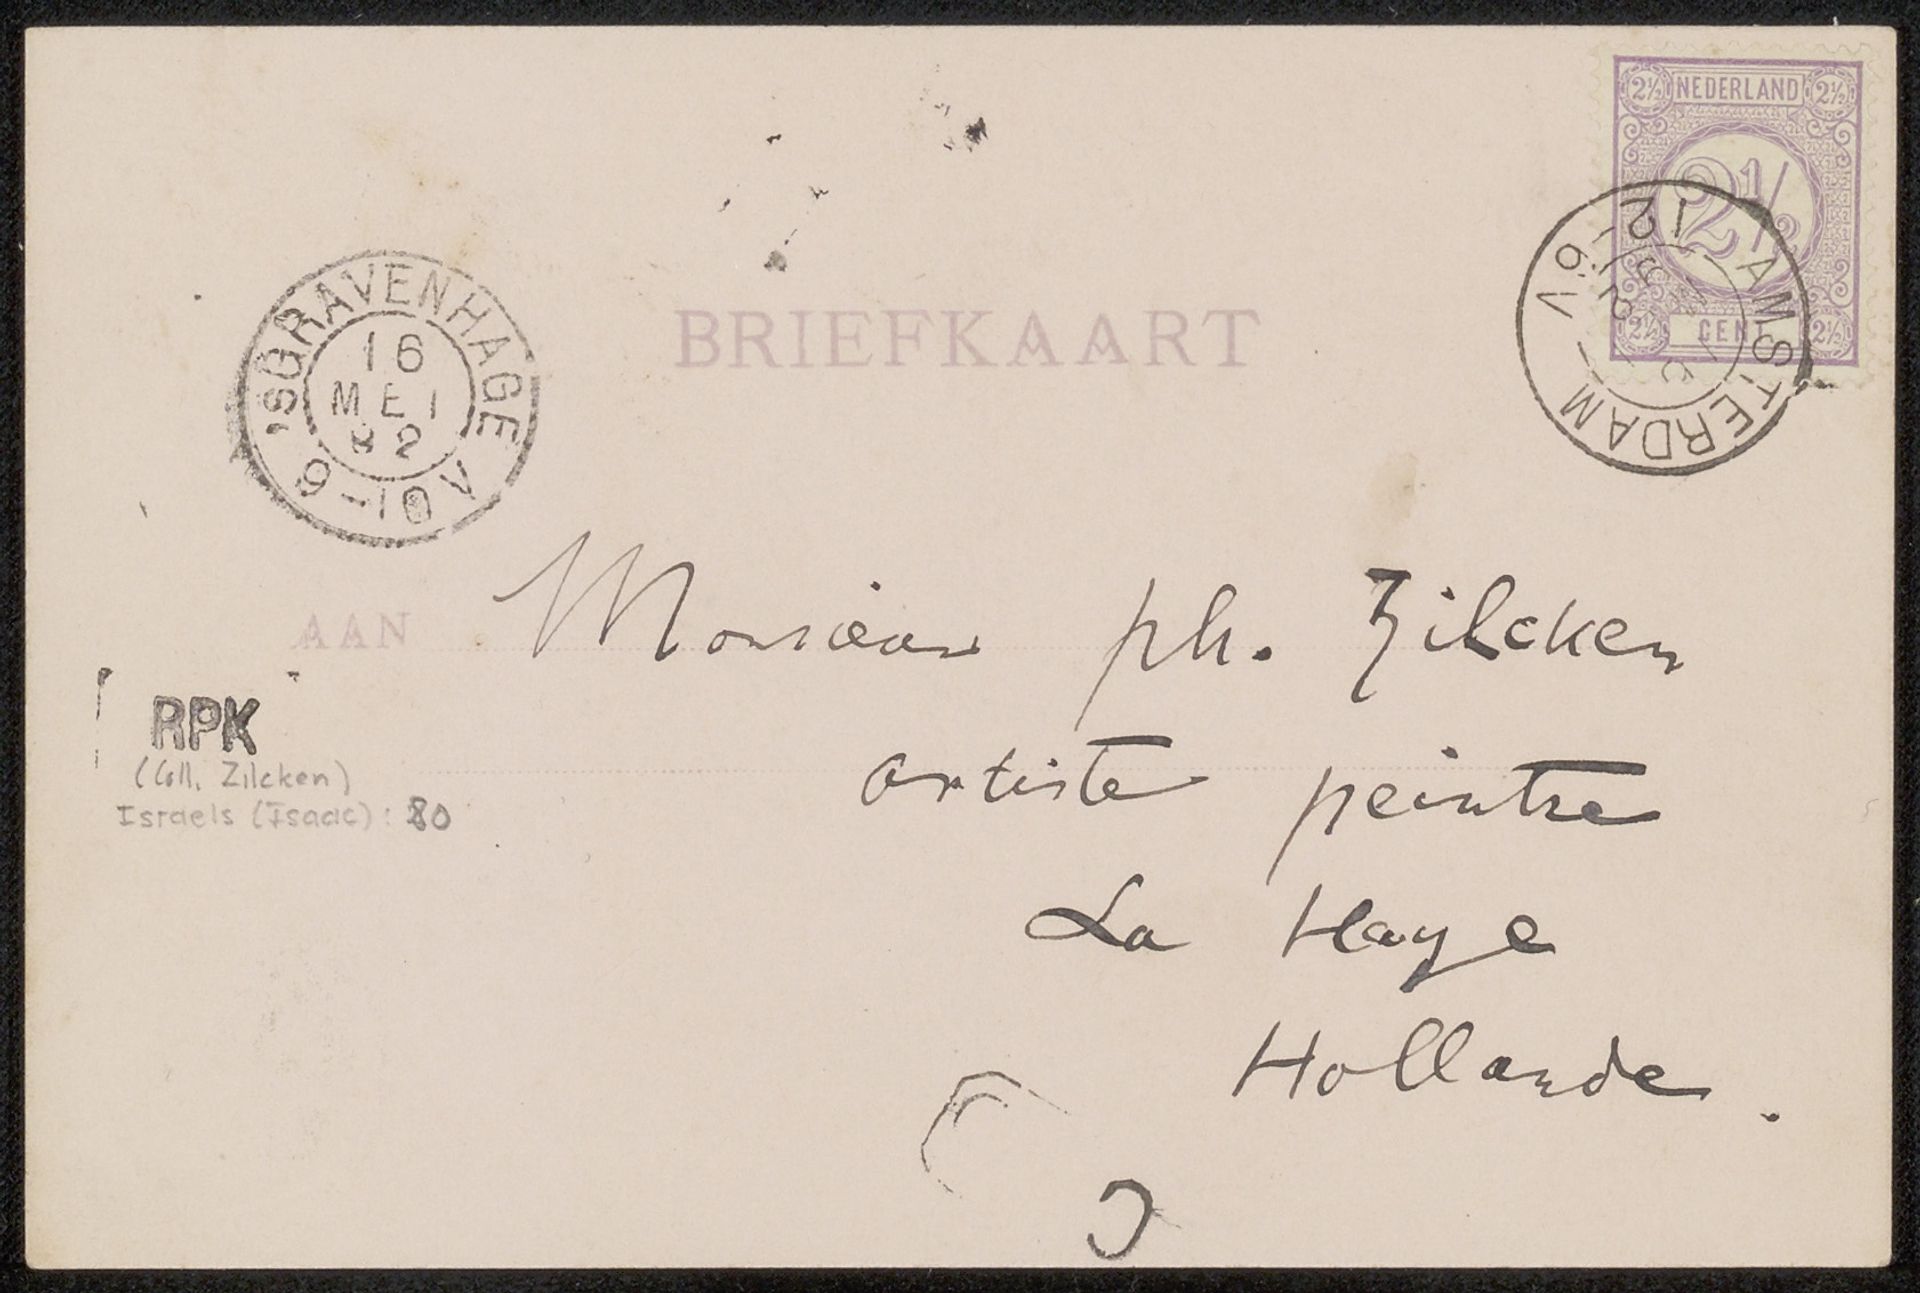 2½ NEDERLAND 2½
2½
2½ CENT 2½
AMSTERDAM
12
'SGRAVENHAGE
16
MEI
92
BRIEFKAART
AAN
Monsieur ph. Zilcken
artiste peintre
La Haye
Hollande.
RPK
(Coll. Zilcken)
Israels (Isaac): 80